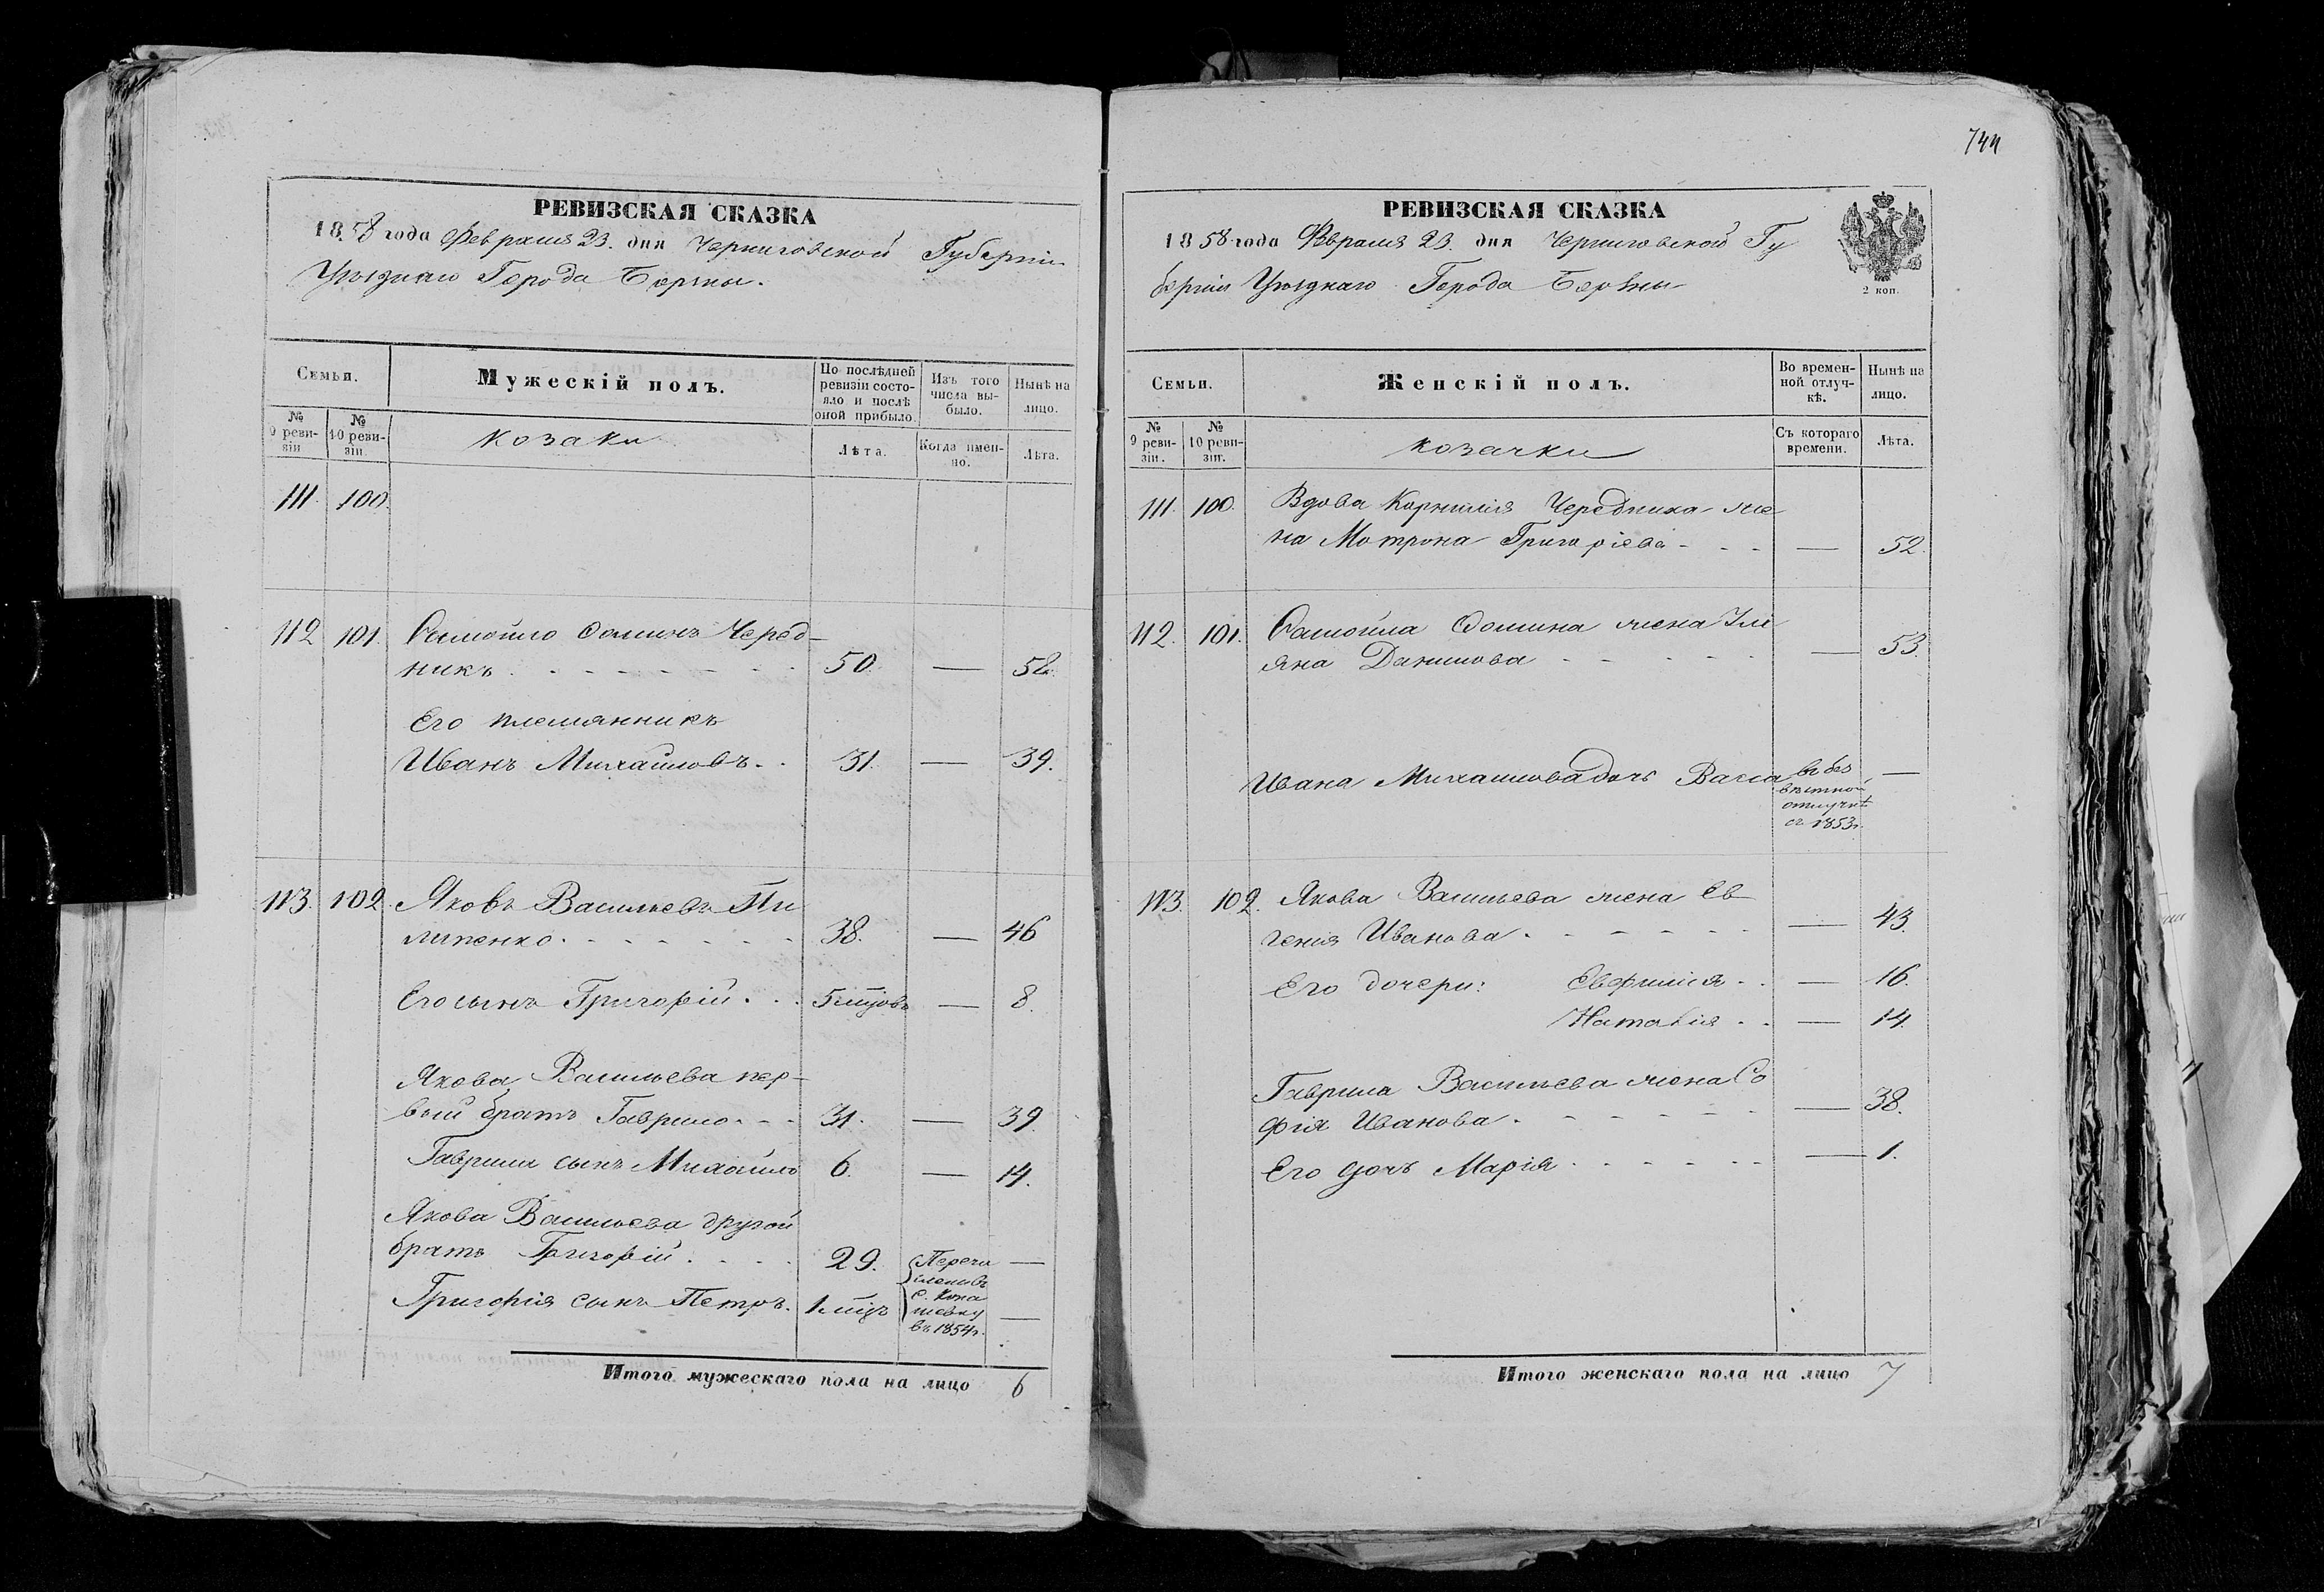 РЕВИЗСКАЯ СКАЗКА
1858 года Февраля 23. дня Черниговской Губерніи
Уѣзднаго Города Борзны.
Семьи.
Мужескій полъ.
По послѣдней ревизіи состояло и послѣ оной прибыло.
Изъ того числа выбыло.
Нынѣ на лицо.
№ 9 ревизіи
№ 10 ревизіи.
козаки
Лѣта.
Когда именно.
Лѣта.
111. 100.
112 101. Самойло Фоминъ Черед-
никъ . - - - - - - 50. — 58.
Его племянникъ
Иванъ Михайловъ. . 31. — 39.
113. 102. Яковъ Васильевъ Пи
липенко. - - - - - - 38. — 46
Его сынъ Григорій. . . — 8.
Якова Васильева пер-
вый братъ Гаврило. - - 31. — 39.
Гаврила сынъ Михайло 6. — 14.
Якова Васильева другой
братъ Григорій . . . . 29. Перечи —
сленъ въ
с.
въ 1854 г.
Григорія сынъ Петръ. —
Итого мужескаго пола на лицо 6
744
РЕВИЗСКАЯ СКАЗКА
1858 года Февраля 23. дня Черниговской Гу
берніи Уѣзднаго Города Борзны
2 коп.
Семьи.
Женскій полъ.
Во временной отлучкѣ.
Нынѣ на лицо.
№ 9 ревизіи.
№ 10 ревизіи.
козачки
Съ котораго времени.
Лѣта.
111. 100. Вдова Корнилія Чередника же
на Мотрона Григоріева - - - — 52.
112. 101. Самойла Фомина жена Улі
яна Данилова - - - - - — 53.
Ивана Михайлова дочь Васса въ без —
вѣстной
отлучкѣ
съ 1853 г.
113. 102. Якова Васильева жена Ев
генія Иванова . - - - - - — 43.
Его дочери: Евфимія. . — 16.
Наталія . . — 14.
Гаврила Васильева жена Со
фія Иванова . - - - - - — 38.
Его дочь Марія . - - - - - — 1.
Итого женскаго пола на лицо 7